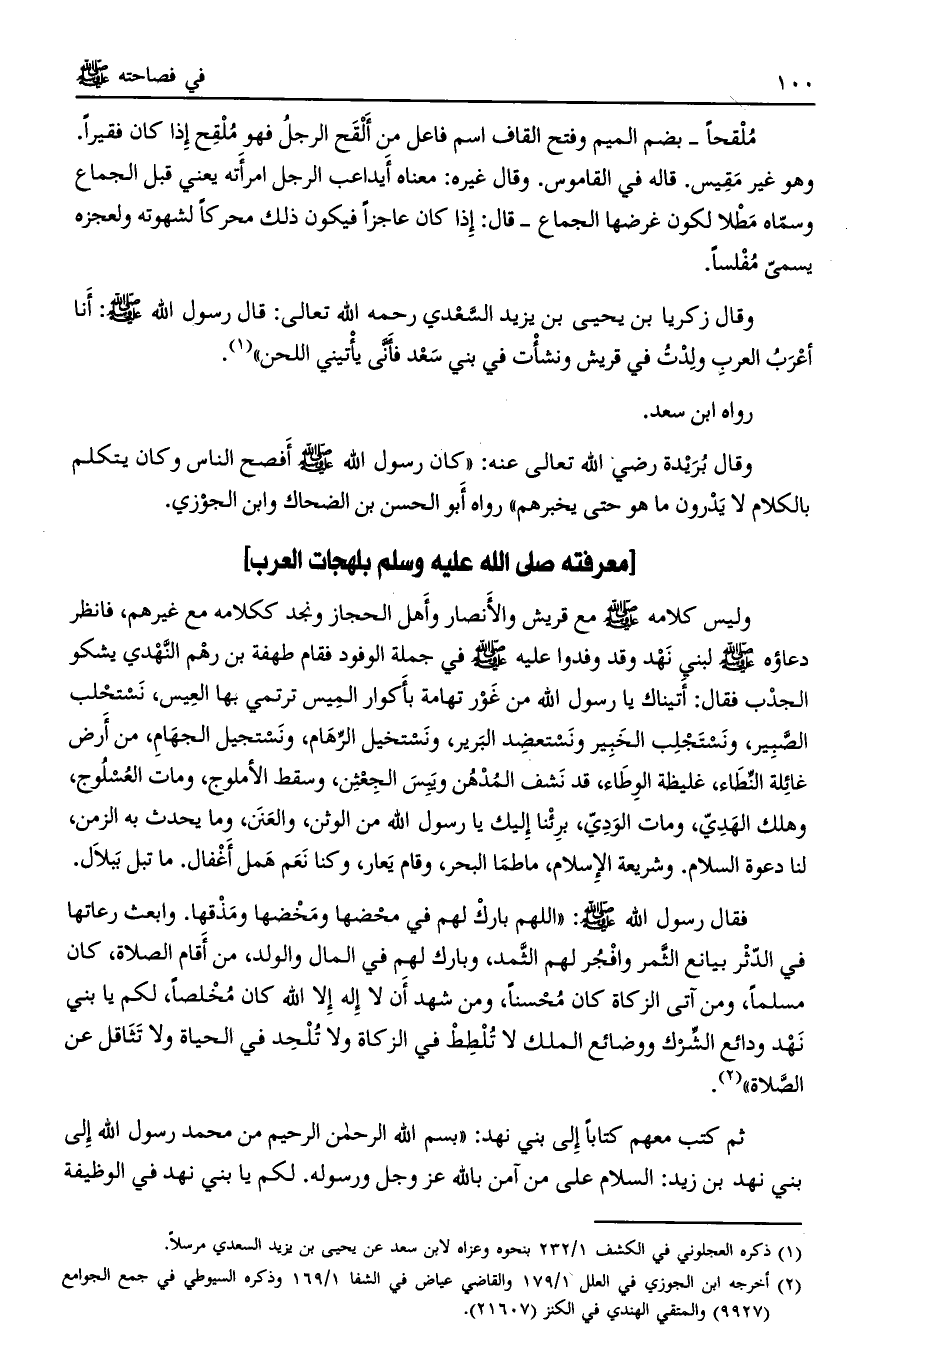 ١٠٠ في فصاحته ﷺ
مُلْقحاً ـ بضم الميم وفتح القاف اسم فاعل من أَلْقَح الرجلُ فهو مُلْقِح إذا كان فقيراً.
وهو غير مَقِيس. قاله في القاموس. وقال غيره: معناه أيداعب الرجل امرأته يعني قبل الجماع
وسمّاه مَطْلا لكون غرضها الجماع ـ قال: إذا كان عاجزاً فيكون ذلك محركاً لشهوته ولعجزه
يسمىّ مُفْلساً.
وقال زكريا بن يحيى بن يزيد السَّعْدي رحمه الله تعالى: قال رسول الله ﷺ: أَنا
أعْرَبُ العربِ ولِدْتُ في قريش ونشأْت في بني سَعْد فأَنَّى يأْتيني اللحن»(١).
رواه ابن سعد.
وقال بُرَيْدة رضي الله تعالى عنه: «كان رسول الله ﷺ أَفصح الناس وكان يتكلم
بالكلام لا يَدْرون ما هو حتى يخبرهم» رواه أبو الحسن بن الضحاك وابن الجوْزي.
[معرفته صلى الله عليه وسلم بلهجات العرب]
وليس كلامه ﷺ مع قريش والأَنصار وأَهل الحجاز ونجد ككلامه مع غيرهم، فانظر
دعاؤه ﷺ لبني نَهْد وقد وفدوا عليه ﷺ في جملة الوفود فقام طهفة بن رهْم النَّهْدي يشكو
الجذب فقال: أَتيناك يا رسول الله من غَوْر تهامة بأَكوار المِيس ترتمي بها العِيس، نَسْتحْلب
الصَّبِير، ونَسْتَجْلِب الخَبِير ونَسْتعضِد البَرير، ونَسْتخيل الرِّهَام، ونَسْتجيل الجهَام، من أَرض
غائِلة النِّطَاء، غليظة الوِطَاء، قد نَشف المُدْهُن ويَبِسَ الجِعْثِن، وسقط الأملوج، ومات العُسْلُوج،
وهلك الهَدِيّ، ومات الوَدِيّ، برئْنا إليك يا رسول الله من الوثن، والعَنَن، وما يحدث به الزمن،
لنا دعوة السلام. وشريعة الإسلام، ماطمَا البحر، وقام يَعار، وكنا نَعَم هَمل أَغْفال. ما تبل بَبلاَل.
فقال رسول الله ﷺ: «اللهم باركْ لهم في محْضها ومَخْضها ومَذْقها. وابعث رعاتها
في الدّثْر بيانع الثَّمر وافْجُر لهم الثَّمد، وبارك لهم في المال والولد، من أَقام الصلاة، كان
مسلماً، ومن آتى الزكاة كان مُحْسناً، ومن شهد أَن لا إله إلا الله كان مُخْلصاً، لكم يا بني
نَهْد ودائع الشِّرْك ووضائع الملك لا تُلْطِطْ في الزكاة ولا تُلْحِد في الحياة ولا تَثَاقل عن
الصَّلاة»(٢).
ثم كتب معهم كتاباً إلى بني نهد: «بسم الله الرحمٰن الرحيم من محمد رسول الله إلى
بني نهد بن زيد: السلام على من آمن بالله عز وجل ورسوله. لكم يا بني نهد في الوظيفة
(١) ذكره العجلوني في الكشف ٢٣٢/١ بنحوه وعزاه لابن سعد عن يحيى بن يزيد السعدي مرسلاً.
(٢) أخرجه ابن الجوزي في العلل ١٧٩/١ والقاضي عياض في الشفا ١٦٩/١ وذكره السيوطي في جمع الجوامع
(٩٩٢٧) والمتقي الهندي في الكنز (٢١٦٠٧).